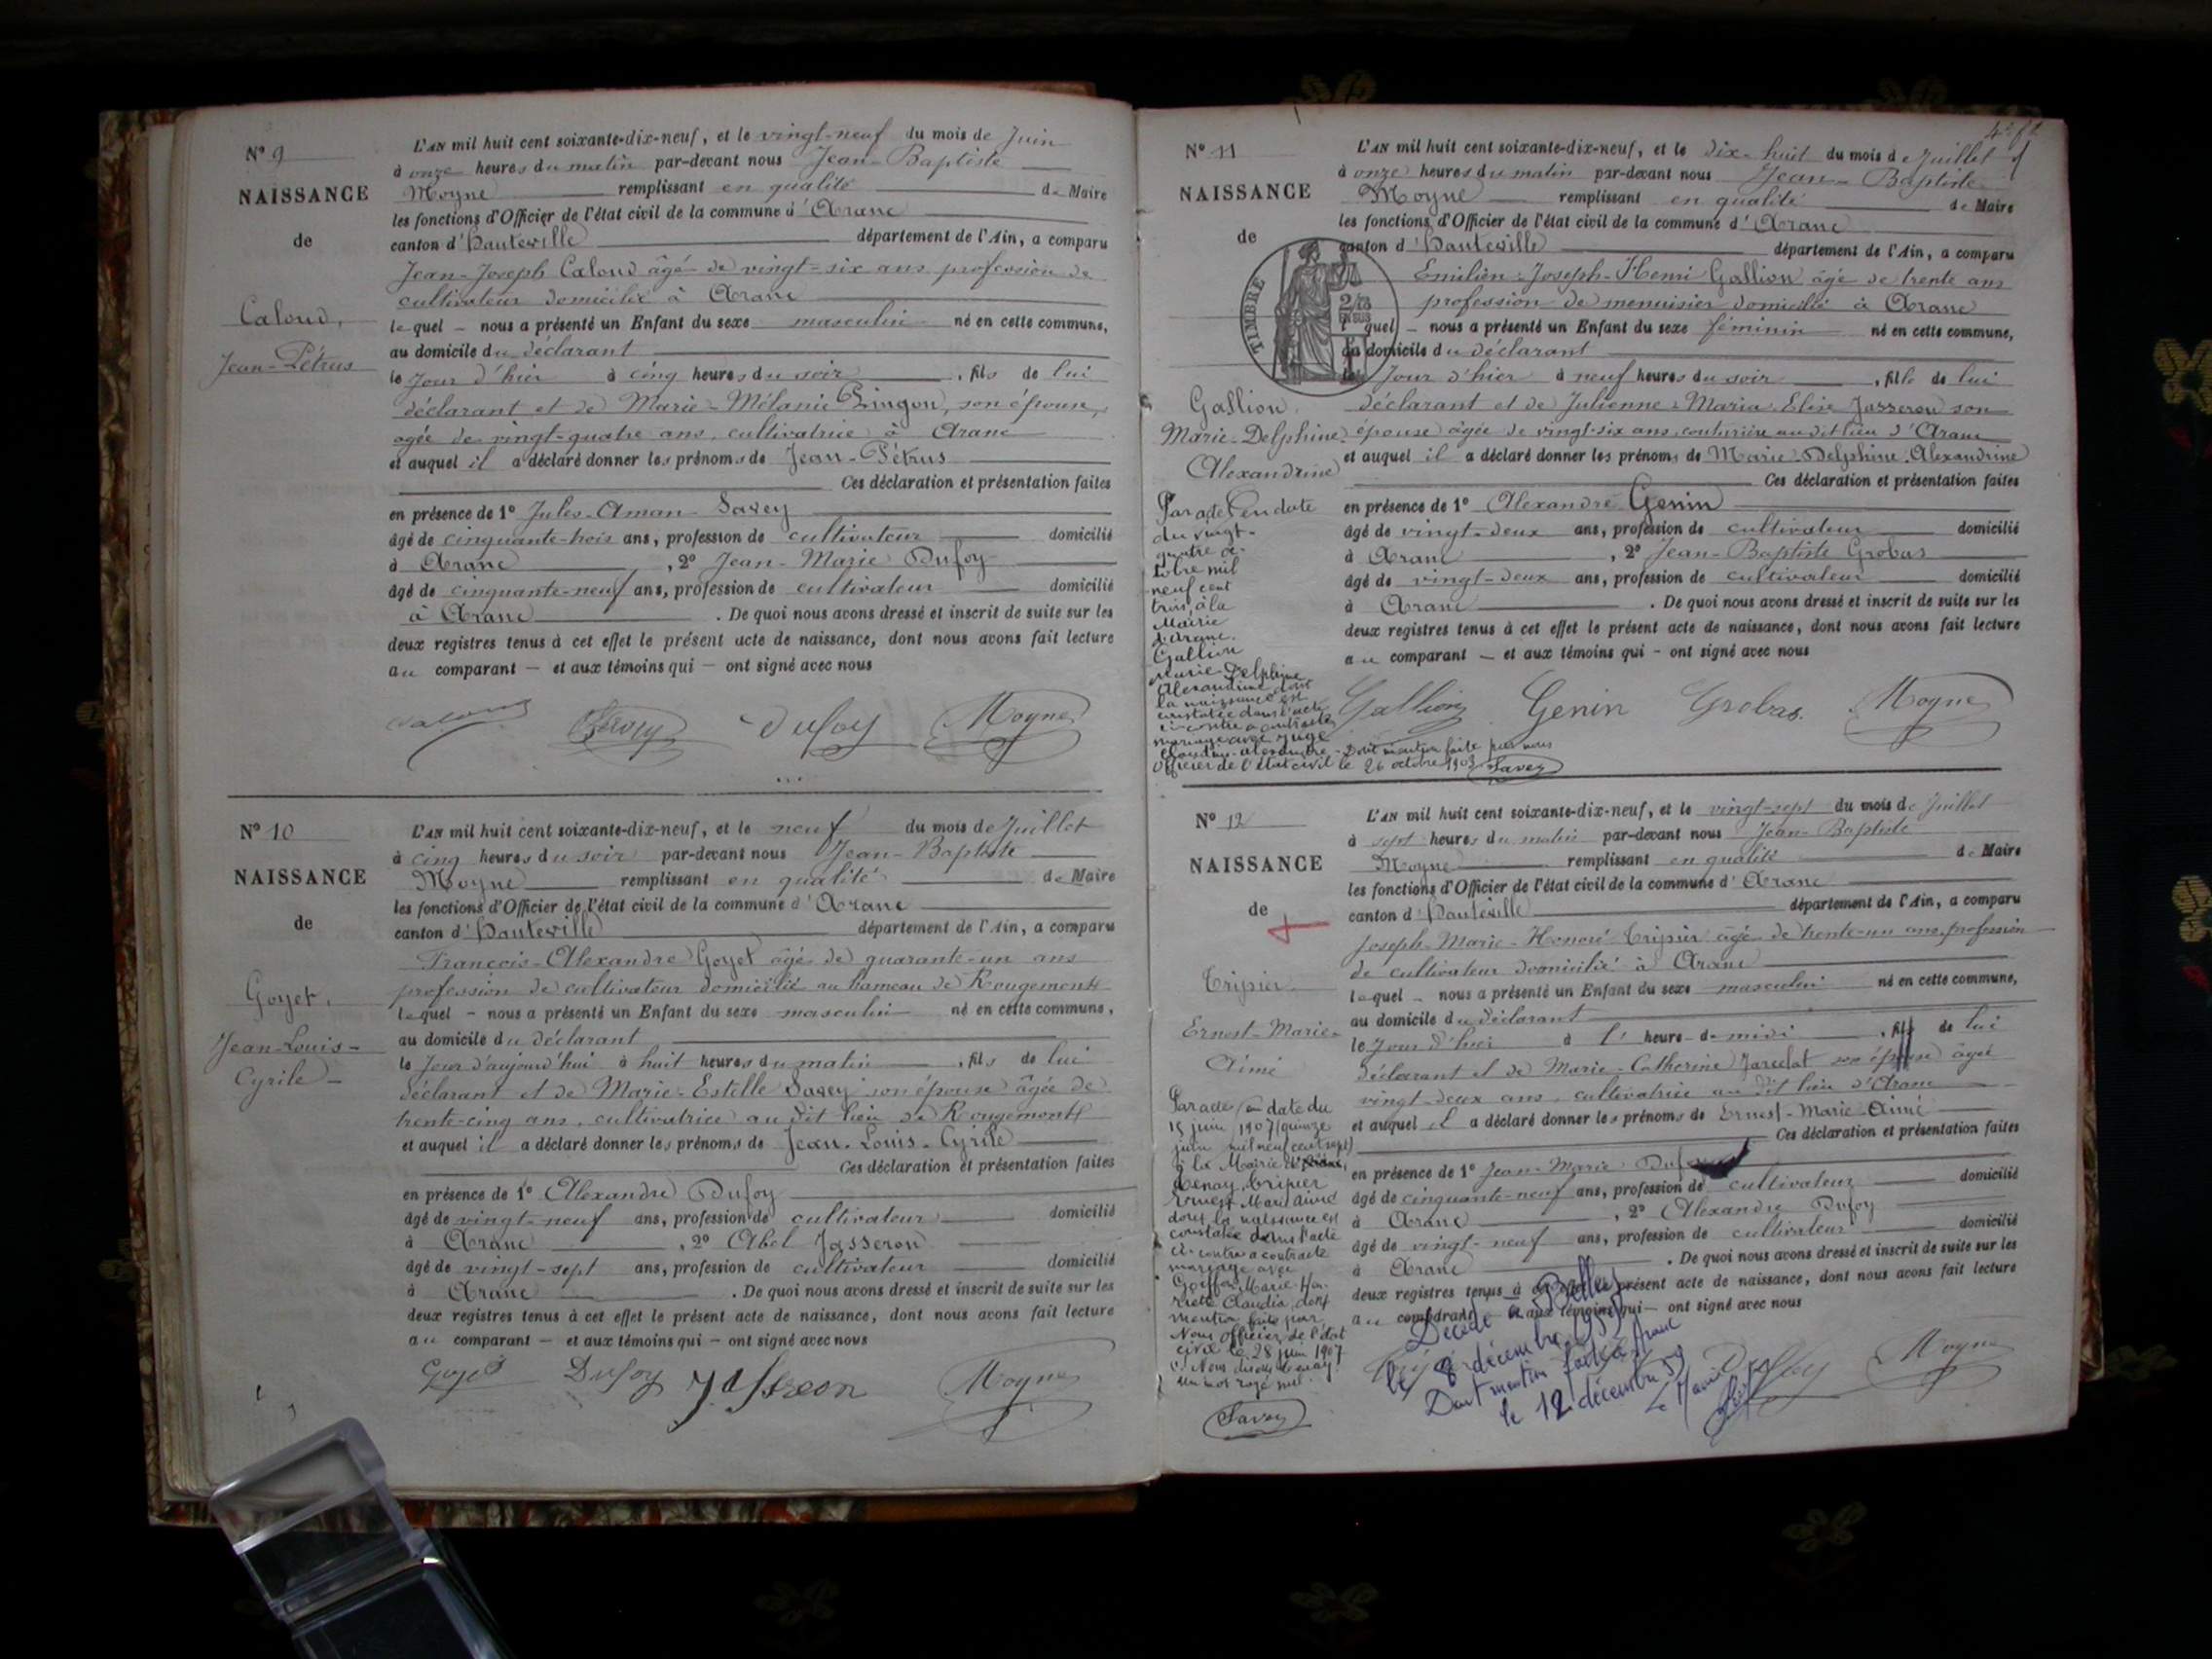 N° 9
NAISSANCE
de
Caloud,
Jean-Pétrus
L'AN mil huit cent soixante-dix-neuf, et le vingt-neuf du mois de Juin
à onze heures du matin par-devant nous Jean-Baptiste
Moyne remplissant en qualité de Maire
les fonctions d'Officier de l'état civil de la commune d'Aranc
canton d'Hauteville département de l'Ain, a comparu
Jean-Joseph Caloud âgé de vingt-six ans profession de
cultivateur domicilié à Aranc
lequel — nous a présenté un Enfant du sexe masculin né en cette commune,
au domicile du déclarant
le jour d'hier à cinq heures du soir, fils de lui
déclarant et de Marie-Mélanie Pingon, son épouse,
agée de vingt-quatre ans, cultivatrice à Aranc
et auquel il a déclaré donner les prénoms de Jean-Pétrus
Ces déclaration et présentation faites
en présence de 1° Jules-Aman Savey
âgé de cinquante-trois ans, profession de cultivateur domicilié
à Aranc, 2° Jean-Marie Dufoy
âgé de cinquante-neuf ans, profession de cultivateur domicilié
à Aranc. De quoi nous avons dressé et inscrit de suite sur les
deux registres tenus à cet effet le présent acte de naissance, dont nous avons fait lecture
au comparant — et aux témoins qui — ont signé avec nous
Caloud Savey Dufoy Moyne
N° 10
NAISSANCE
de
Goyet,
Jean-Louis-
Cyrile
L'AN mil huit cent soixante-dix-neuf, et le neuf du mois de Juillet
à cinq heures du soir par-devant nous Jean-Baptiste
Moyne remplissant en qualité de Maire
les fonctions d'Officier de l'état civil de la commune d'Aranc
canton d'Hauteville département de l'Ain, a comparu
François-Alexandre Goyet âgé de quarante-un ans
profession de cultivateur domicilié au hameau de Rougemont
lequel — nous a présenté un Enfant du sexe masculin né en cette commune,
au domicile du déclarant
le jour d'aujourd'hui à huit heures du matin, fils de lui
déclarant et de Marie-Estelle Savey son épouse âgée de
trente-cinq ans, cultivatrice au dit lieu de Rougemont
et auquel il a déclaré donner les prénoms de Jean-Louis-Cyrile
Ces déclaration et présentation faites
en présence de 1° Alexandre Dufoy
âgé de vingt-neuf ans, profession de cultivateur domicilié
à Aranc, 2° Abel Jasseron
âgé de vingt-sept ans, profession de cultivateur domicilié
à Aranc. De quoi nous avons dressé et inscrit de suite sur les
deux registres tenus à cet effet le présent acte de naissance, dont nous avons fait lecture
au comparant — et aux témoins qui — ont signé avec nous
Goyet Dufoy Jasseron Moyne
N° 11
NAISSANCE
de
TIMBRE
Gallion,
Marie-Delphine
Alexandrine
L'AN mil huit cent soixante-dix-neuf, et le dix-huit du mois de Juillet
à onze heures du matin par-devant nous Jean-Baptiste
Moyne remplissant en qualité de Maire
les fonctions d'Officier de l'état civil de la commune d'Aranc
canton d'Hauteville département de l'Ain, a comparu
Emilien-Joseph-Henri Gallion âgé de trente ans
profession de menuisier domicilié à Aranc
lequel — nous a présenté un Enfant du sexe féminin né en cette commune,
au domicile du déclarant
le jour d'hier à neuf heures du soir, fille de lui
déclarant et de Julienne-Maria-Elise Jasseron son
épouse âgée de vingt-six ans couturière au dit lieu d'Aranc
et auquel il a déclaré donner les prénoms de Marie-Delphine-Alexandrine
Ces déclaration et présentation faites
en présence de 1° Alexandre Genin
âgé de vingt-deux ans, profession de cultivateur domicilié
à Aranc, 2° Jean-Baptiste Grobas
âgé de vingt-deux ans, profession de cultivateur domicilié
à Aranc. De quoi nous avons dressé et inscrit de suite sur les
deux registres tenus à cet effet le présent acte de naissance, dont nous avons fait lecture
au comparant — et aux témoins qui — ont signé avec nous
Gallion Genin Grobas Moyne
Par acte en date
du vingt-
quatre oc-
tobre mil
neuf cent
trois, à la
Mairie
d'Aranc,
Gallion
Marie-Delphine
Alexandrine dont
la naissance est
constatée dans l'acte
ci-contre a contracté
mariage avec
Alexandre - Dont mention faite par nous
Officier de l'état civil le 26 octobre 1903 Savey
N° 12
NAISSANCE
de
Tripier
Ernest-Marie-
Aimé
L'AN mil huit cent soixante-dix-neuf, et le vingt-sept du mois de Juillet
à sept heures du matin par-devant nous Jean-Baptiste
Moyne remplissant en qualité de Maire
les fonctions d'Officier de l'état civil de la commune d'Aranc
canton d'Hauteville département de l'Ain, a comparu
Joseph-Marie-Honoré Tripier âgé de trente-un ans profession
de cultivateur domicilié à Aranc
lequel — nous a présenté un Enfant du sexe masculin né en cette commune,
au domicile du déclarant
le jour d'hier à l' heure de midi, fils de lui
déclarant et de Marie-Catherine son épouse âgée
vingt-deux ans, cultivatrice au dit lieu d'Aranc
et auquel il a déclaré donner les prénoms de Ernest-Marie-Aimé
Ces déclaration et présentation faites
en présence de 1° Jean-Marie Dufoy
âgé de cinquante-neuf ans, profession de cultivateur domicilié
à Aranc, 2° Alexandre Dufoy
âgé de vingt-neuf ans, profession de cultivateur domicilié
à Aranc. De quoi nous avons dressé et inscrit de suite sur les
deux registres tenus à cet effet le présent acte de naissance, dont nous avons fait lecture
au comparant et aux témoins qui — ont signé avec nous
Dufoy Moyne
Par acte en date du
15 juin 1907 (quinze
juin mil neuf cent sept)
à la Mairie de
Tenay, Tripier
Ernest Marie Aimé
dont la naissance est
constatée dans l'acte
ci-contre a contracté
mariage avec
Goiffon Marie-Hen-
riette Claudia, dont
mention faite par
Nous officier de l'état
civil le 28 juin 1907
un mot rayé nul.
Savey
Décédé à Belley
le 8 décembre 1959
Dont mention faite à Aranc
le 12 décembre 59
Le Maire